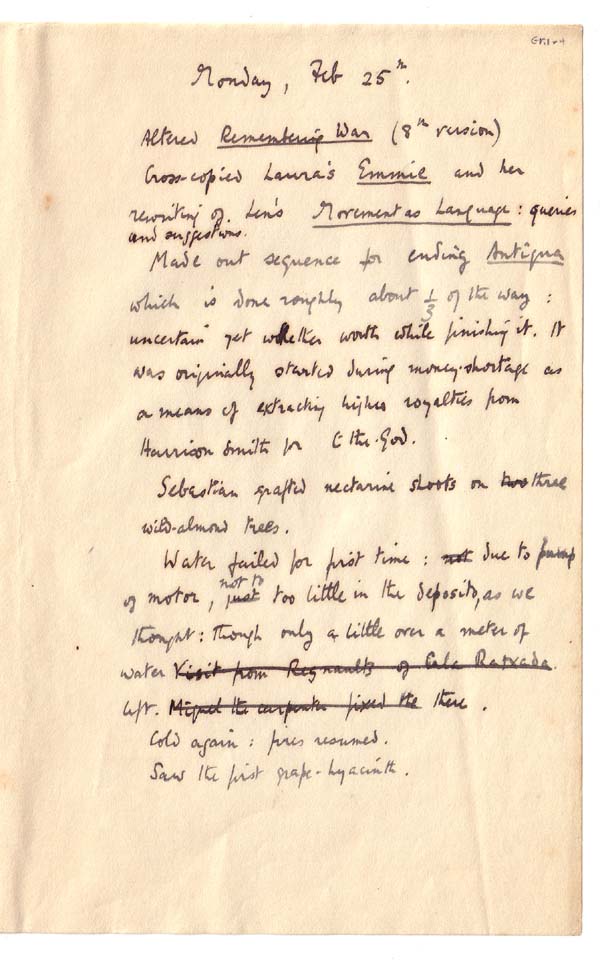 Monday, Feb 25th.
Altered Remembering War (8th version)
Cross-copied Laura's Emmie and her
rewriting of Len's Movement as Language: queries
and suggestions.
Made out sequence for ending Antigua
which is done roughly about 1/3 of the way:
uncertain yet whether worth while finishing it. It
was originally started during money-shortage as
a means of extracting higher royalties from
Harrison Smith for C the God.
Sebastian grafted nectarine shoots on two three
wild-almond trees.
Water failed for first time: not due to pump
not to
of motor, just too little in the deposito, as we
thought: though only a little over a meter of
water Visit from Regnaults of Cala Ratxada.
left. Miguel the carpenter fixed the there.
Cold again: fires resumed.
Saw the first grape-hyacinth.